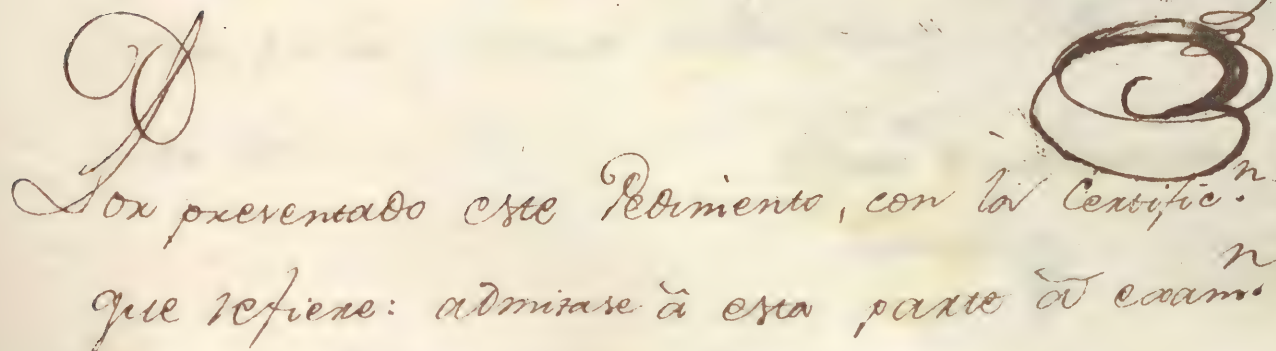 Por presentado este Pedimento, con la Certific.n
que refiere: admitase à esta parte à exam.n